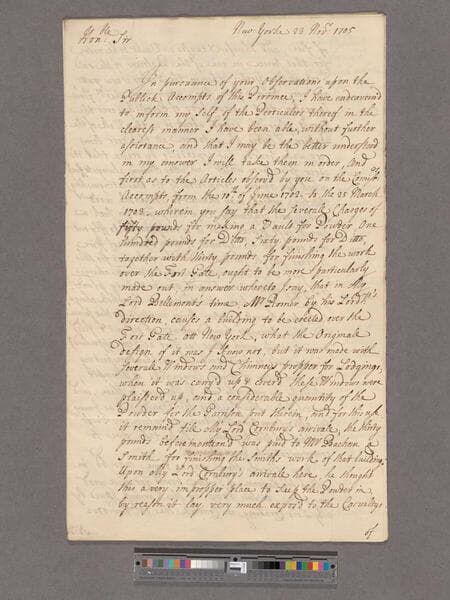 New Yorke 23 Novr. 1705
Honble. Sir
In pursuance of your Observations upon the
Publick Accompts of this Province, I have endeavourd
to inform my Self of the Perticulers thereof in the
clearest manner I have been able, without further
assistance, and that I may be the better understood
in my answer I will take them in order, And
first as to the Articles observ'd by you on the
Accompts from the 10th. of June 1702. to the 25 March
1703. wherein you say that the severall Charges of
fifty pounds for making a Vault for Powder One
hundred pounds for Ditto, Sixty pounds for Ditto,
together with thirty pounds for finishing the work
over the Fort Gate, ought to be more particularly
made out, in answer whereto I say, that in My
Lord Bellemonts time Mr. Romer by his Lordpp's
direction, causes a building to be erected over the
Fort Gate att New York, what the Originall
design of it was I know not, but it was made with
severall Windows and Chimneys propper for Lodgings,
when it was carry'd up & cover'd these Windows were
plaister'd up, and a considerable quantity of the
Powder for the Garrison put therein, and for this use
it remain'd till My Lord Cornburys arrivale, the thirty
pounds beforemention'd was paid to Mr. a
Smith for finishing the Smiths work of that building.
Upon My Lord Cornbury's arrivale here, he thought
this a very improper place to keep the Powder in
by reason it lay very much expos'd to the Casualtys
of